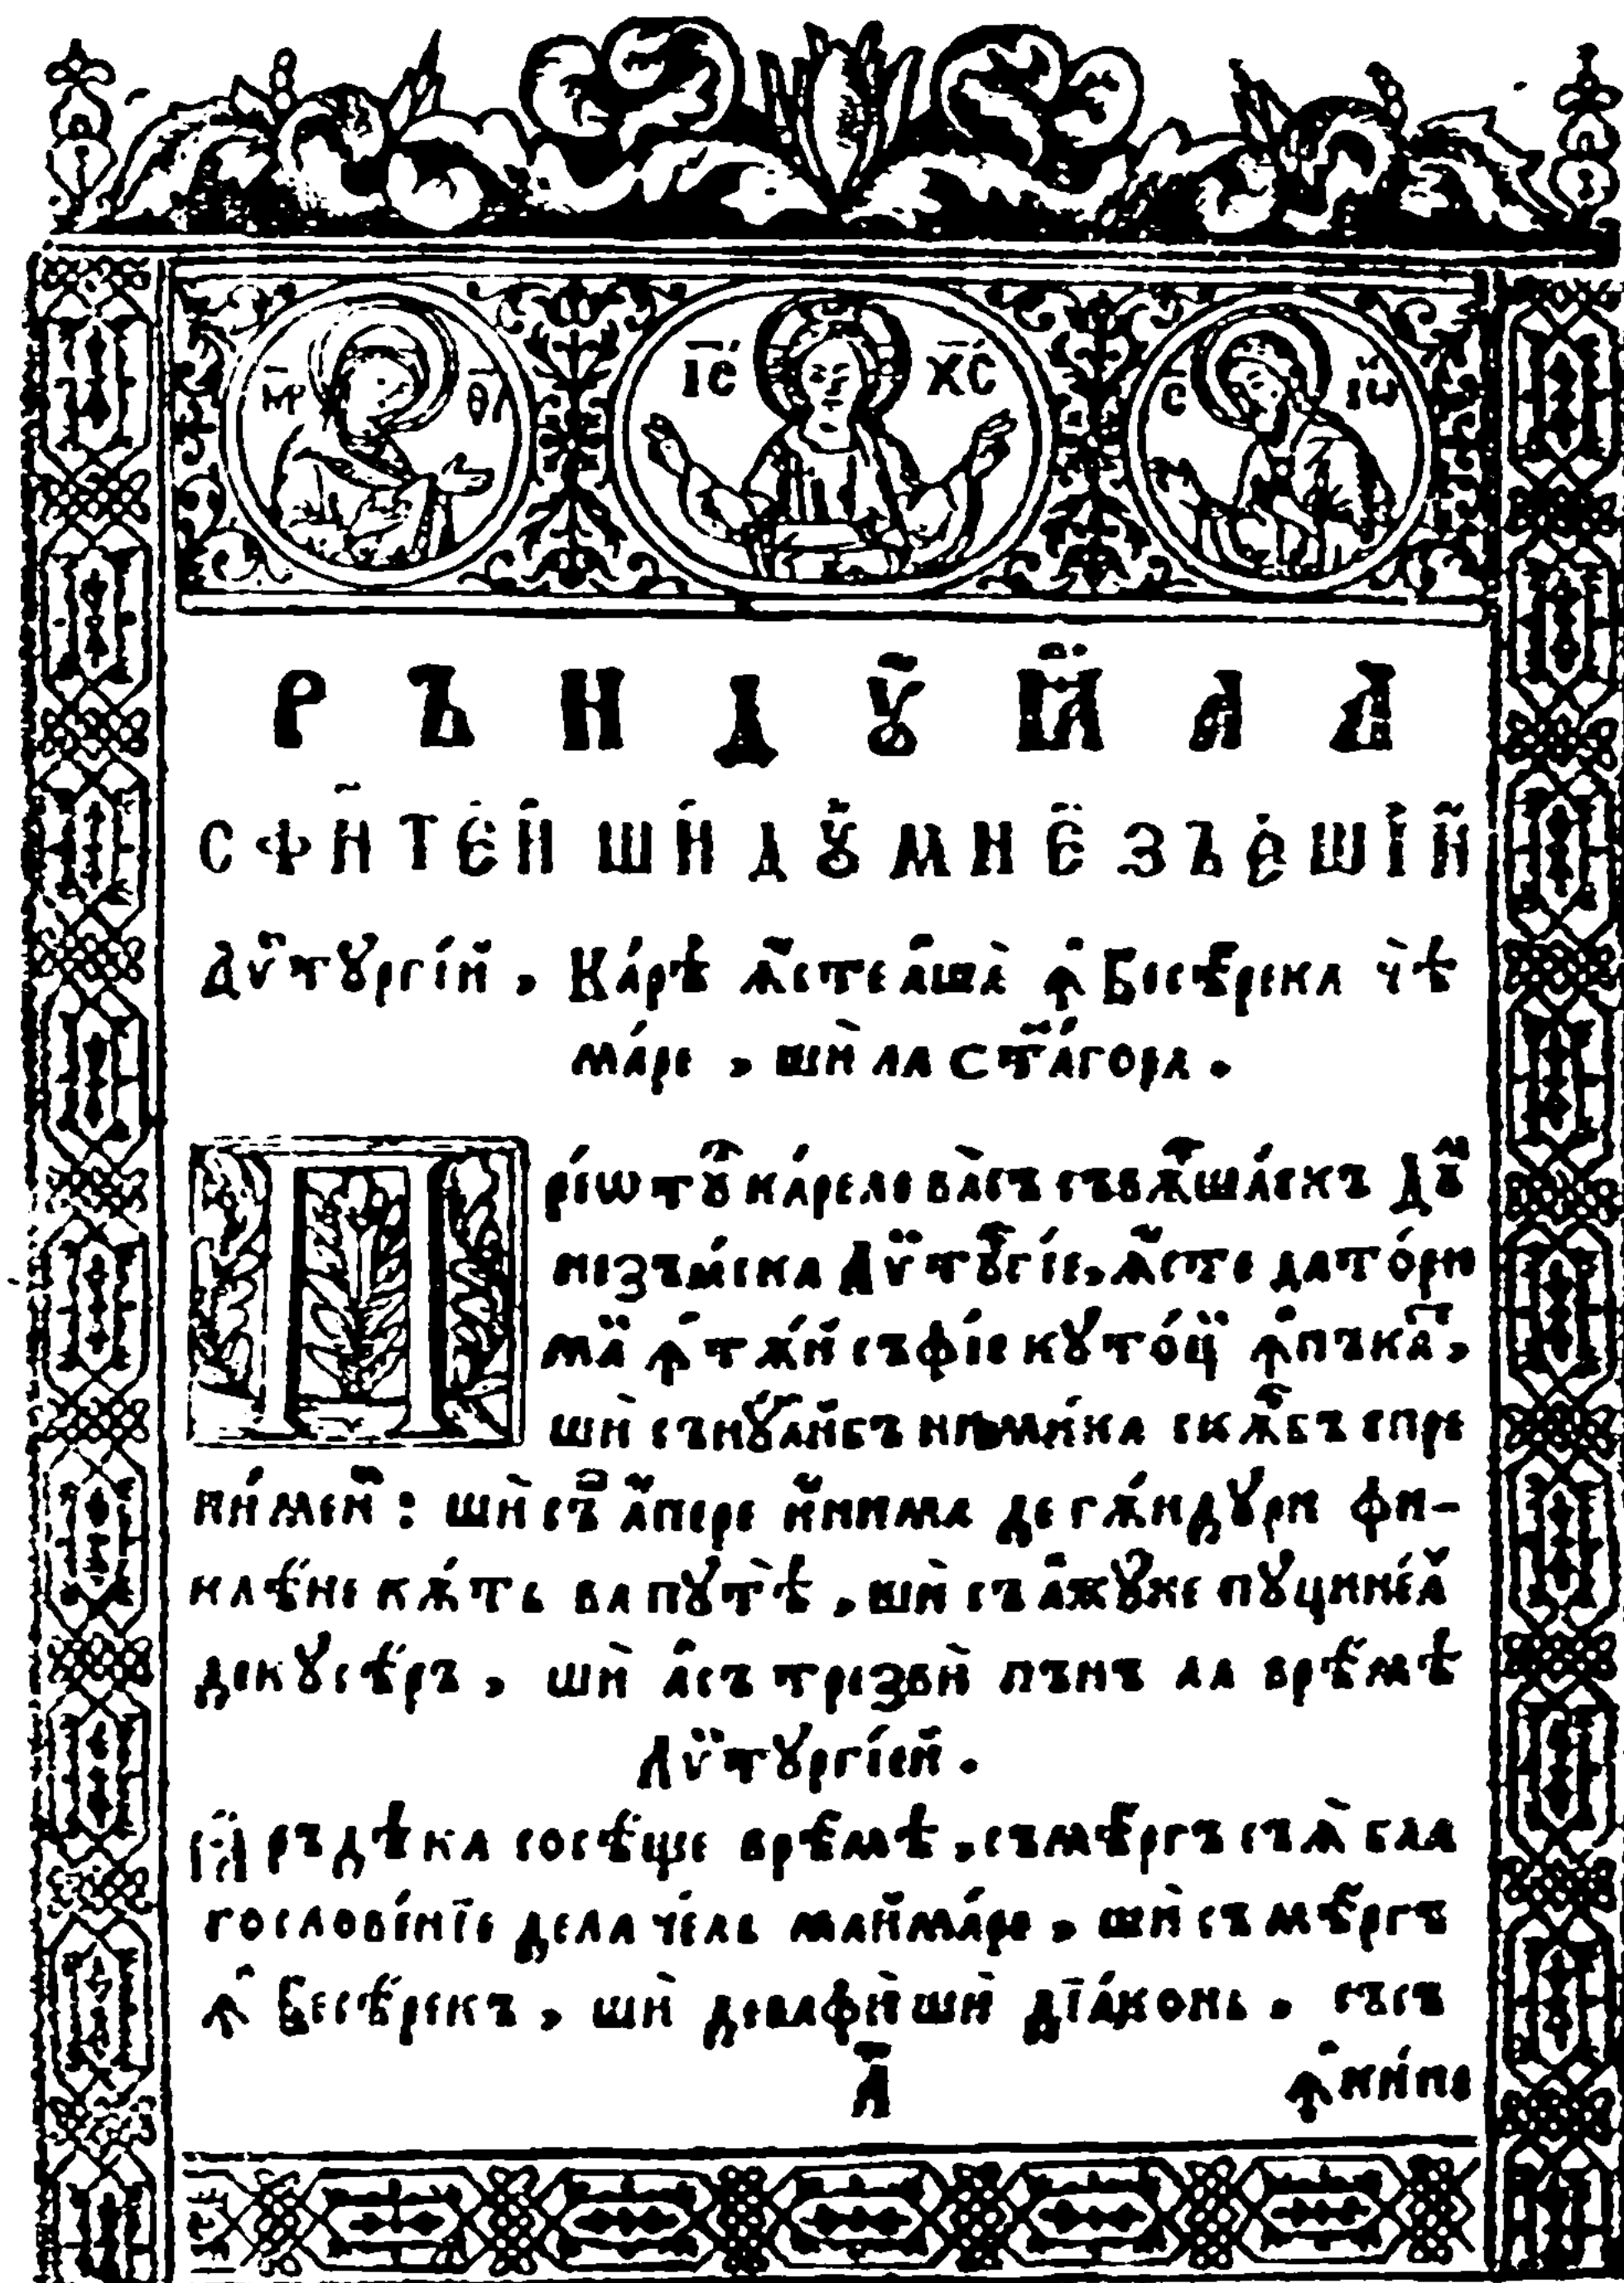 М҃Р Ѳ҃У І҃С Х҃С С҃ ІѠ
РЪНДꙊ́ІАЛА
СФН́ТЕЙ ШЍ ДꙊМНЕЗЪЕШІЙ
Лѷтꙋргі́й, Ка́рѣ ꙗ҆́сте а҆ша̀ ꙟ҆ Бесѣ́река чѣ
ма́ре, шѝ ла ст҃а́гора.
Пре́ѡтꙋ ка́реле ва̀съ съвѫ҆ша́скъ Дꙋ
незъꙗ́ска Лѷтꙋгі́е, ꙗ҆́сте дато́рꙋ
маⷩ҇ ꙟ҆тѫ́й съфі́е кꙋто́ц ꙟ҆пъка,
шѝ сънꙋ́айбъ ни́мика скѫ́бъ спре
ни́мен: шѝ съ а҆́пере и҆́нима де гѫ́ндꙋри фи-
клѣ́не кѫ́ть ва пꙋтѣ̀, шѝ съ а҆жꙋ́не пꙋцинѐа
декꙋсѣ́ръ, шѝ а҆́съ трезвѝ пънъ ла врѣ́мѣ
Лѷтꙋргі́ей.
Їаръ дѣка сосѣ́ще врѣ́мѣ, съмѣ́ргъ съꙗ҆̀ бла
гослове́нїе дела че́ль май ма́ре, шѝ съ мѣ́ргъ
ꙟ҆ Бесѣ́рекъ, шѝ девафѝ шѝ дїа́конь, съсъ
а҃ ꙟ҆ки́не